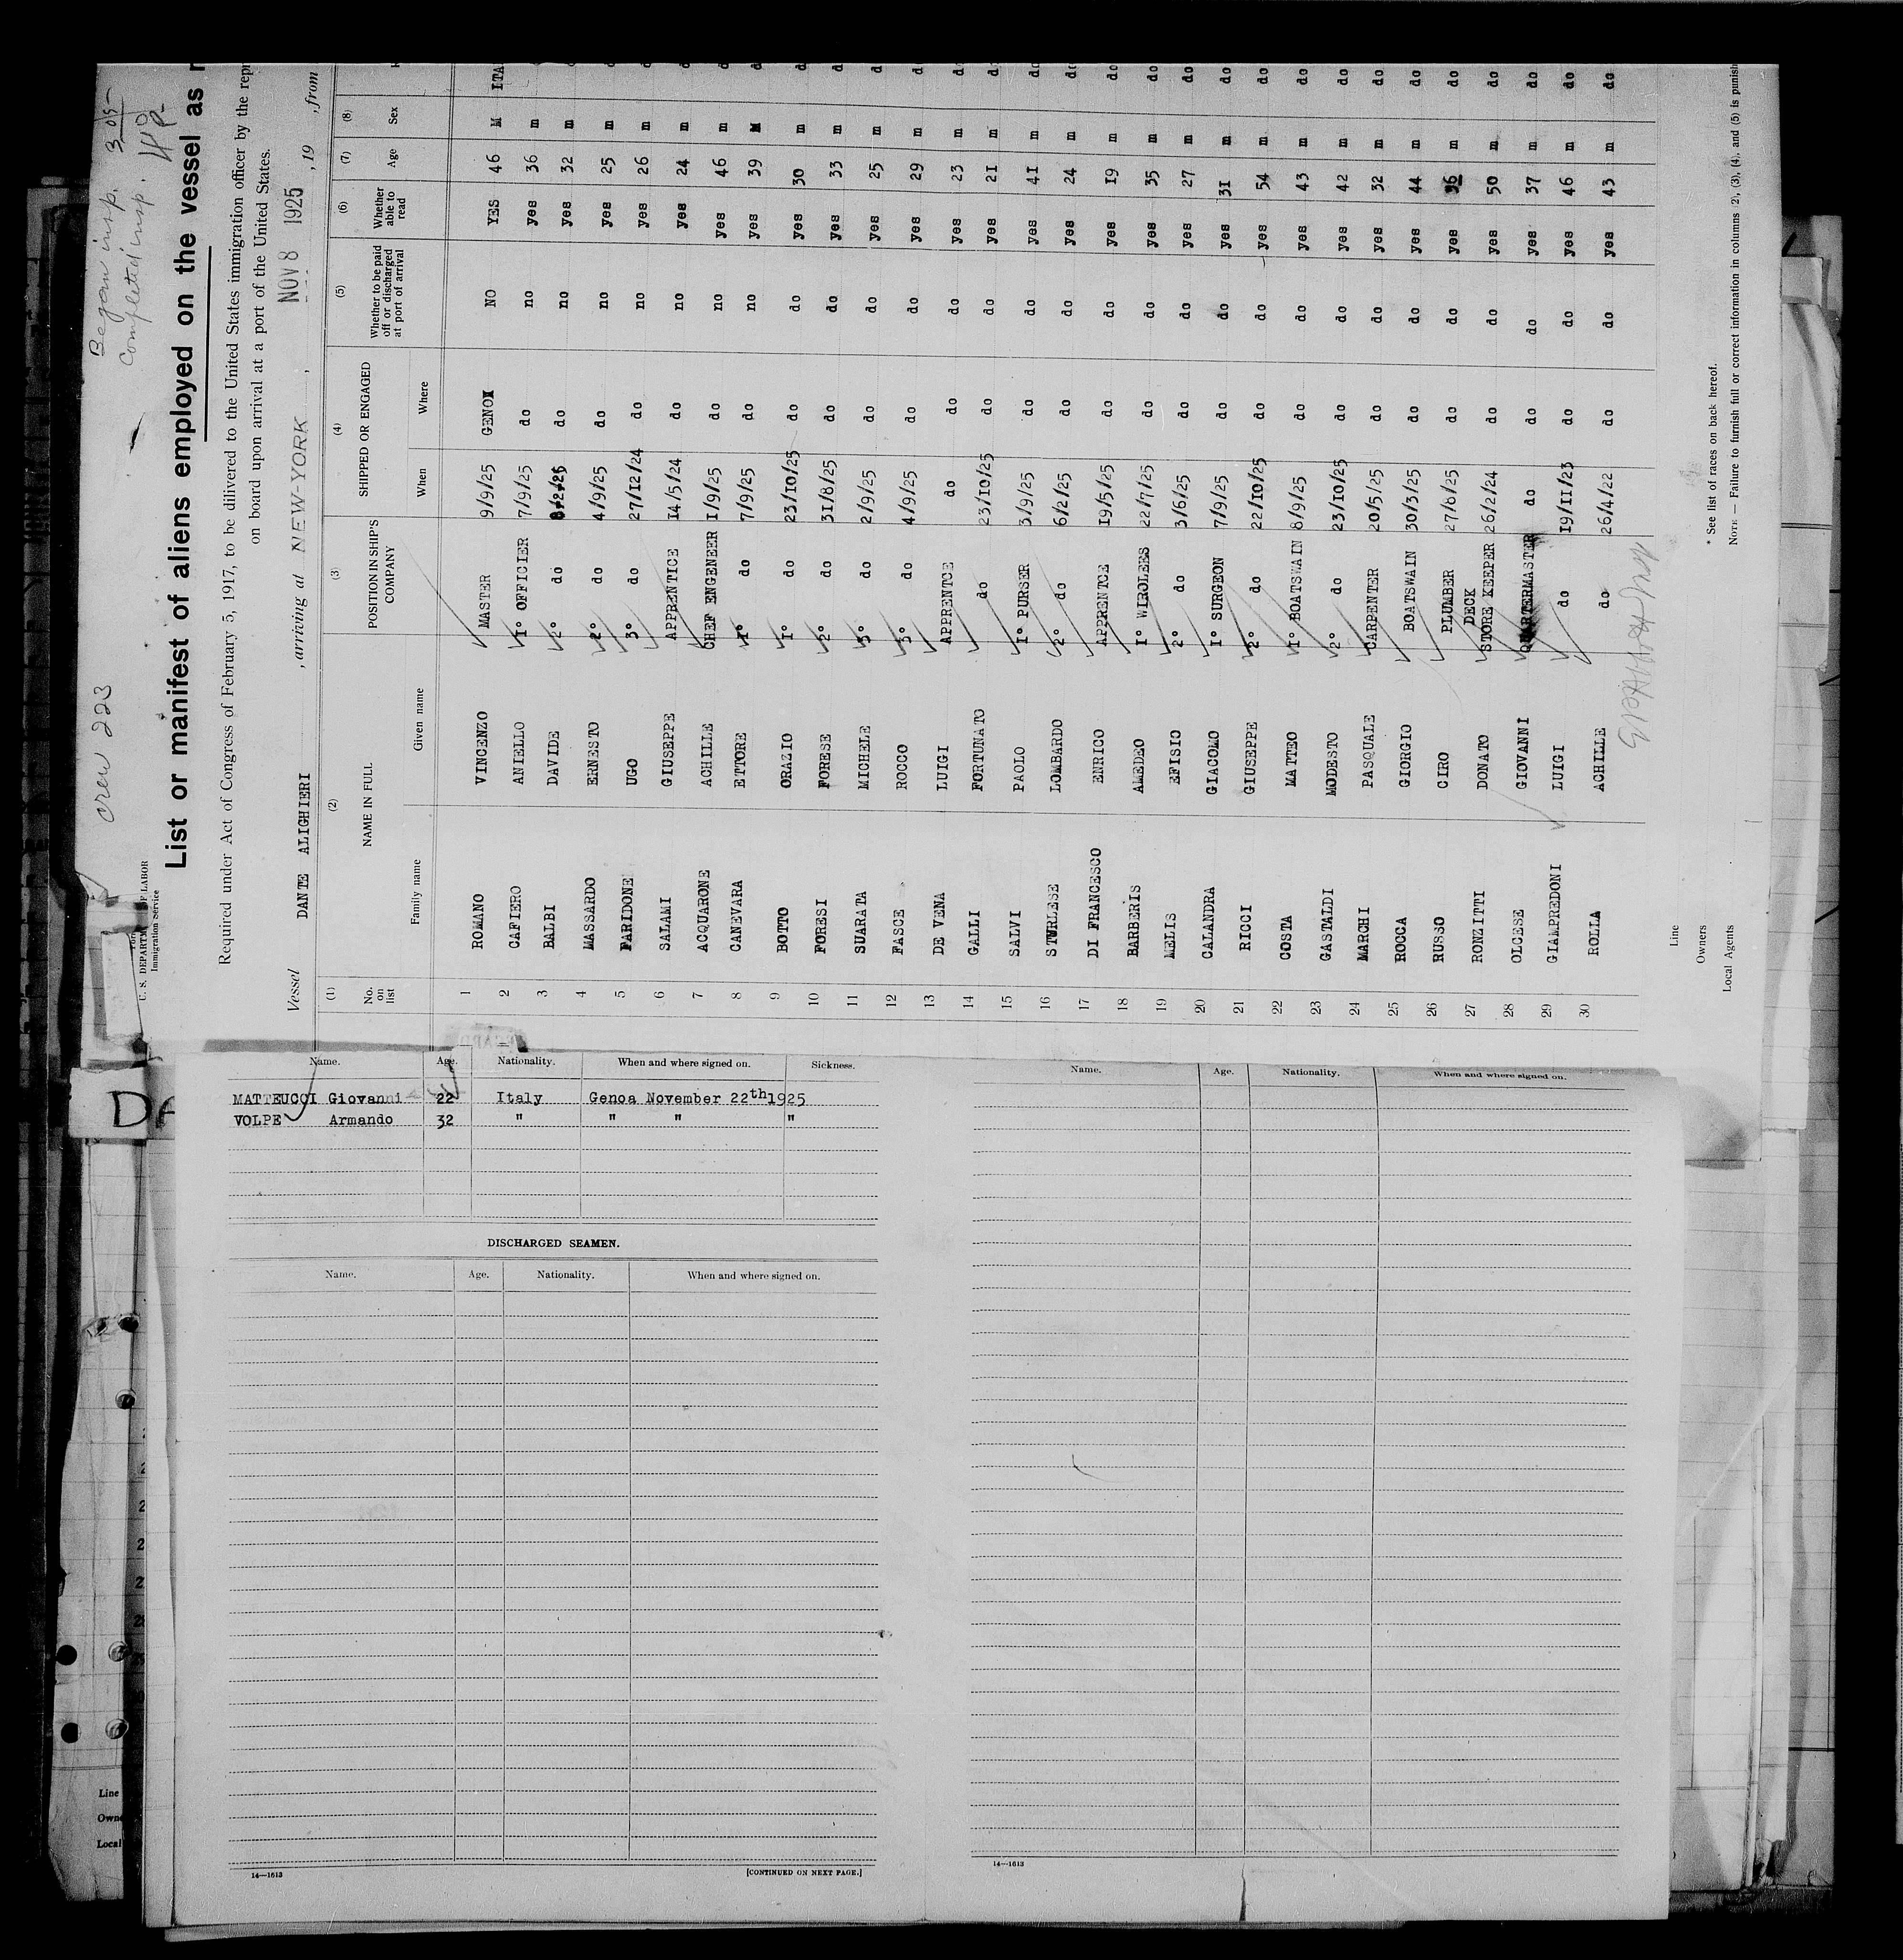 Began insp. 3 05
Completed insp. 4 10 P
crew 223
U. S. DEPARTMENT OF LABOR
Immigration Service
List or manifest of aliens employed on the vessel as
Required under Act of Congress of February 5, 1917, to be dilivered to the United States immigration officer by the repr
on board upon arrival at a port of the United States.
Vessel DANTE ALIGHIERI , arriving at NEW-YORK , NOV 8 1925 , 19 , from
(1) (2) (3) (4) (5) (6) (7) (8)
No. on list NAME IN FULL POSITION IN SHIP'S COMPANY SHIPPED OR ENGAGED Whether to be paid off or discharged at port of arrival Whether able to read Age Sex
Family name Given name When Where
1 ROMANO VINCENZO MASTER 9/9/25 GENOA NO YES 46 M ITA
2 CAFIERO ANIELLO I° OFFICIER 7/9/25 do no yes 36 m
3 BALBI DAVIDE 2° do 8/2/25 do no yes 32 m
4 MASSARDO ERNESTO 2° do 4/9/25 do no yes 25 m
5 PARIDONE UGO 3° do 27/12/24 do no yes 26 m
6 SALAMI GIUSEPPE APPRENTICE 14/5/24 do no yes 24 m
7 ACQUARONE ACHILLE CHEF ENGENEER 1/9/25 do no yes 46 m
8 CANEVARA ETTORE I° do 7/9/25 do no yes 39 M
9 BOTTO ORAZIO I° do 23/10/25 do do yes 30 m do
10 FORESI FORESE 2° do 31/8/25 do do yes 33 m do
11 SUARATA MICHELE 3° do 2/9/25 do do yes 25 m do
12 FASCE ROCCO 3° do 4/9/25 do do yes 29 m do
13 DE VENA LUIGI APPRENTCE do do do yes 23 m do
14 GALLI FORTUNATO do 23/10/25 do do yes 21 m do
15 SALVI PAOLO I° PURSER 3/9/25 do do yes 41 m do
16 STURLESE LOMBARDO 2° do 6/2/25 do do yes 24 m do
17 DI FRANCESCO ENRICO APPRENTCE 19/5/25 do do yes 19 m do
18 BARBERIS AMEDEO I° WIROLEES 22/7/25 do do yes 35 m do
19 MELIS EFISIO 2° do 3/6/25 do do yes 27 m do
20 CALANDRA GIACOMO I° SURGEON 7/9/25 do do yes 31 m do
21 RICCI GIUSEPPE 2° do 22/10/25 do do yes 54 m do
22 COSTA MATTEO I° BOATSWAIN 8/9/25 do do yes 43 m do
23 GASTALDI MODESTO 2° do 23/10/25 do do yes 42 m do
24 MARCHI PASQUALE CARPENTER 20/5/25 do do yes 32 m do
25 ROCCA GIORGIO BOATSWAIN 30/3/25 do do yes 44 m do
26 RUSSO CIRO PLUMBER 27/8/25 do do yes 36 m do
27 RONZITTI DONATO DECK STORE KEEPER 26/2/24 do do yes 50 m do
28 OLCESE GIOVANNI QUARTERMASTER do do do yes 37 m do
29 GIAMPREDONI LUIGI do 19/11/23 do do yes 46 m do
30 ROLLA ACHILLE do 26/4/22 do do yes 43 m do
Line
Owners
Local Agents
* See list of races on back hereof.
NOTE — Failure to furnish full or correct information in columns 2), (3), (4), and (5) is punish
Name. Age. Nationality. When and where signed on. Sickness.
MATTEUCCI Giovanni 22 Italy Genoa November 22th1925
VOLPE Armando 32 " " " "
DISCHARGED SEAMEN.
Name. Age. Nationality. When and where signed on.
14—1613
[CONTINUED ON NEXT PAGE.]
Name. Age. Nationality. When and where signed on.
14—1613
DA
Line
Owne
Local